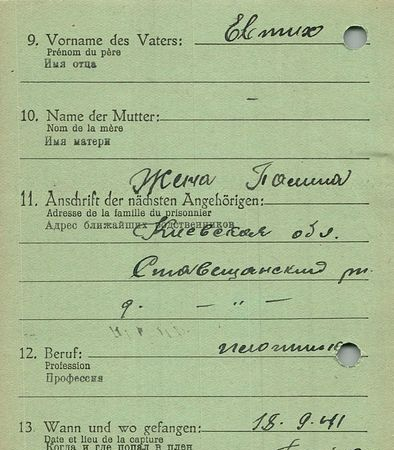 9. Vorname des Vaters: Евтих
Prénom du père
Имя отца
10. Name der Mutter: —
Nom de la mère
Имя матери
Жена
11. Anschrift der nächsten Angehörigen:
Adresse de la famille du prisonnier
Адрес ближайших родственников Киевская обл.
Ставещанский р.
д. — " —
12. Beruf: плотник
Profession
Профессия
13. Wann und wo gefangen: 18. 9. 41
Date et lieu de la capture
Когда и где попал в плен